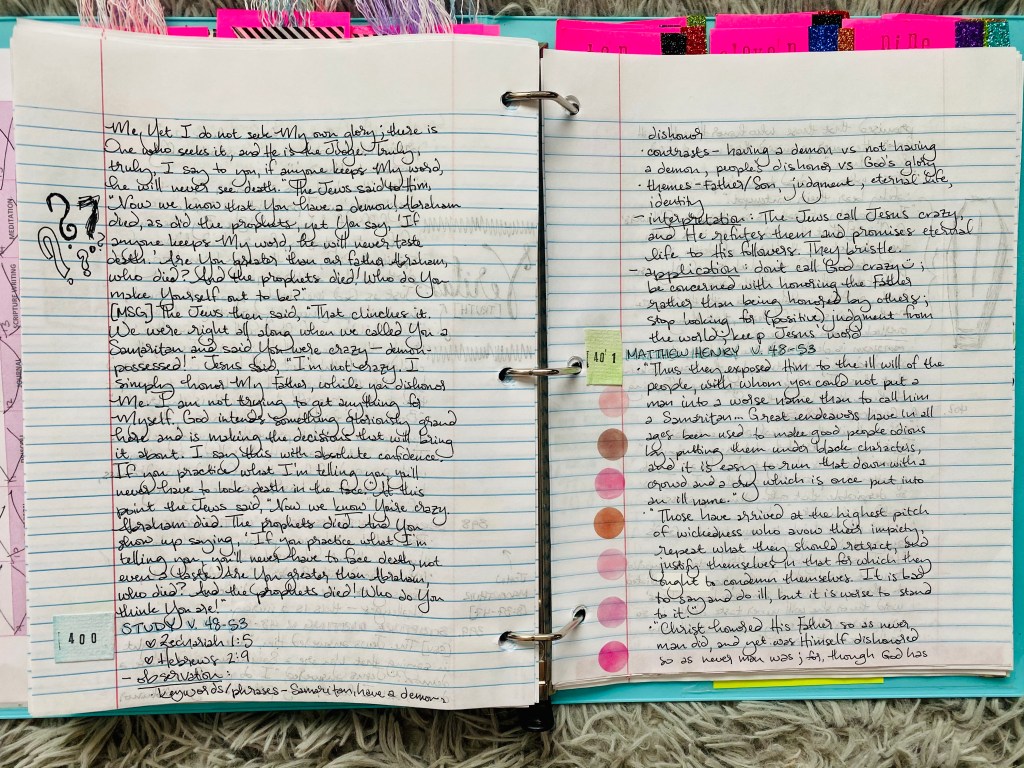 ten
eleven
nine
MEDITATION
SCRIPTURE WRITING
JOURNAL
Me. Yet I do not seek My own glory; there is
One who seeks it, and He is the Judge. Truly,
truly, I say to you, if anyone keeps My word,
he will never see death." The Jews said to Him,
"Now we know that You have a demon! Abraham
died, as did the prophets, yet You say, 'If
anyone keeps My word, he will never taste
death.' Are You greater than our father Abraham,
who died? And the prophets died! Who do You
make Yourself out to be?"
[MSG] The Jews then said, "That clinches it.
We were right all along when we called You a
Samaritan and said You were crazy — demon-
possessed!" Jesus said, "I'm not crazy. I
simply honor My Father, while you dishonor
Me. I am not trying to get anything for
Myself. God intends something gloriously grand
here and is making the decisions that will bring
it about. I say this with absolute confidence.
If you practice what I'm telling you, you'll
never have to look death in the face." At this
point the Jews said, "Now we know You're crazy.
Abraham died. The prophets died. And You
show up saying, 'If you practice what I'm
telling you, you'll never have to face death, not
even a taste.' Are You greater than Abraham,
who died? And the prophets died! Who do You
think You are!"
STUDY V. 48-53
Zechariah 1:5
Hebrews 2:9
- observation:
keywords/phrases - Samaritan, have a demon,
400
dishonor
· contrasts - having a demon vs not having
a demon, people's dishonor vs God's glory
· themes - Father/Son, judgment, eternal life,
identity
- interpretation: The Jews call Jesus crazy,
and He refutes them and promises eternal
life to His followers. They bristle.
- application: don't call God crazy ;
be concerned with honoring the Father
rather than being honored by others;
stop looking for (positive) judgment from
the world; keep Jesus' word
401
MATTHEW HENRY V. 48-53
· "Thus they exposed Him to the ill will of the
people, with whom you could not put a
man into a worse name than to call him
a Samaritan... Great endeavors have in all
ages been used to make good people odious
by putting them under black characters,
and it is easy to run that down with a
crowd and a cry which is once put into
an ill name."
· "Those have arrived at the highest pitch
of wickedness who avow their impiety,
repeat what they should retract, and
justify themselves in that for which they
ought to condemn themselves. It is bad
to say and do ill, but it is worse to stand
to it"
· "Christ honored His Father so as never
man did, and yet was Himself dishonored
so as never man was; for, though God has